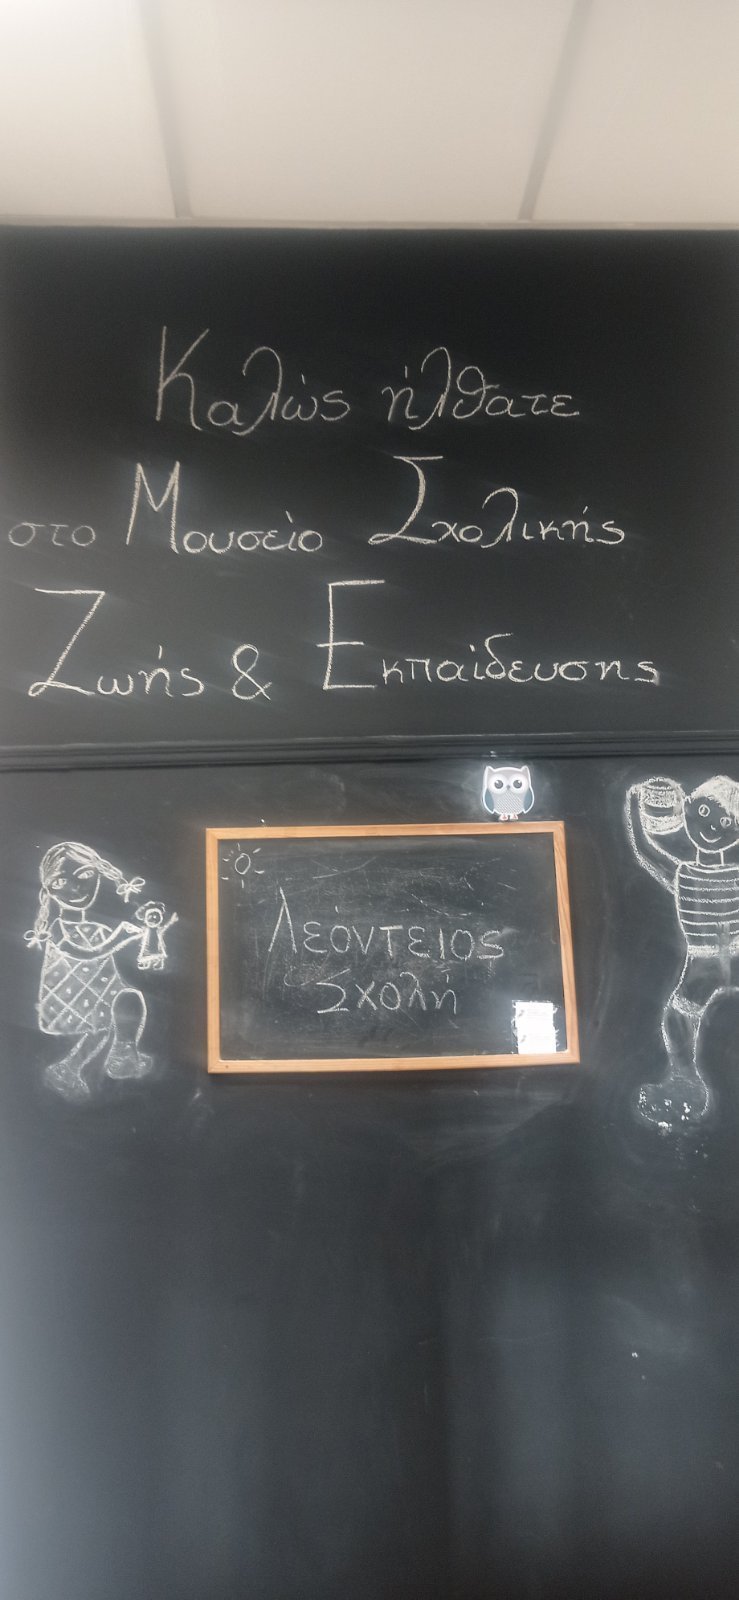 Καλώς ήλθατε
στο Μουσείο Σχολικής
Ζωής & Εκπαίδευσης
Λεόντειος
Σχολή